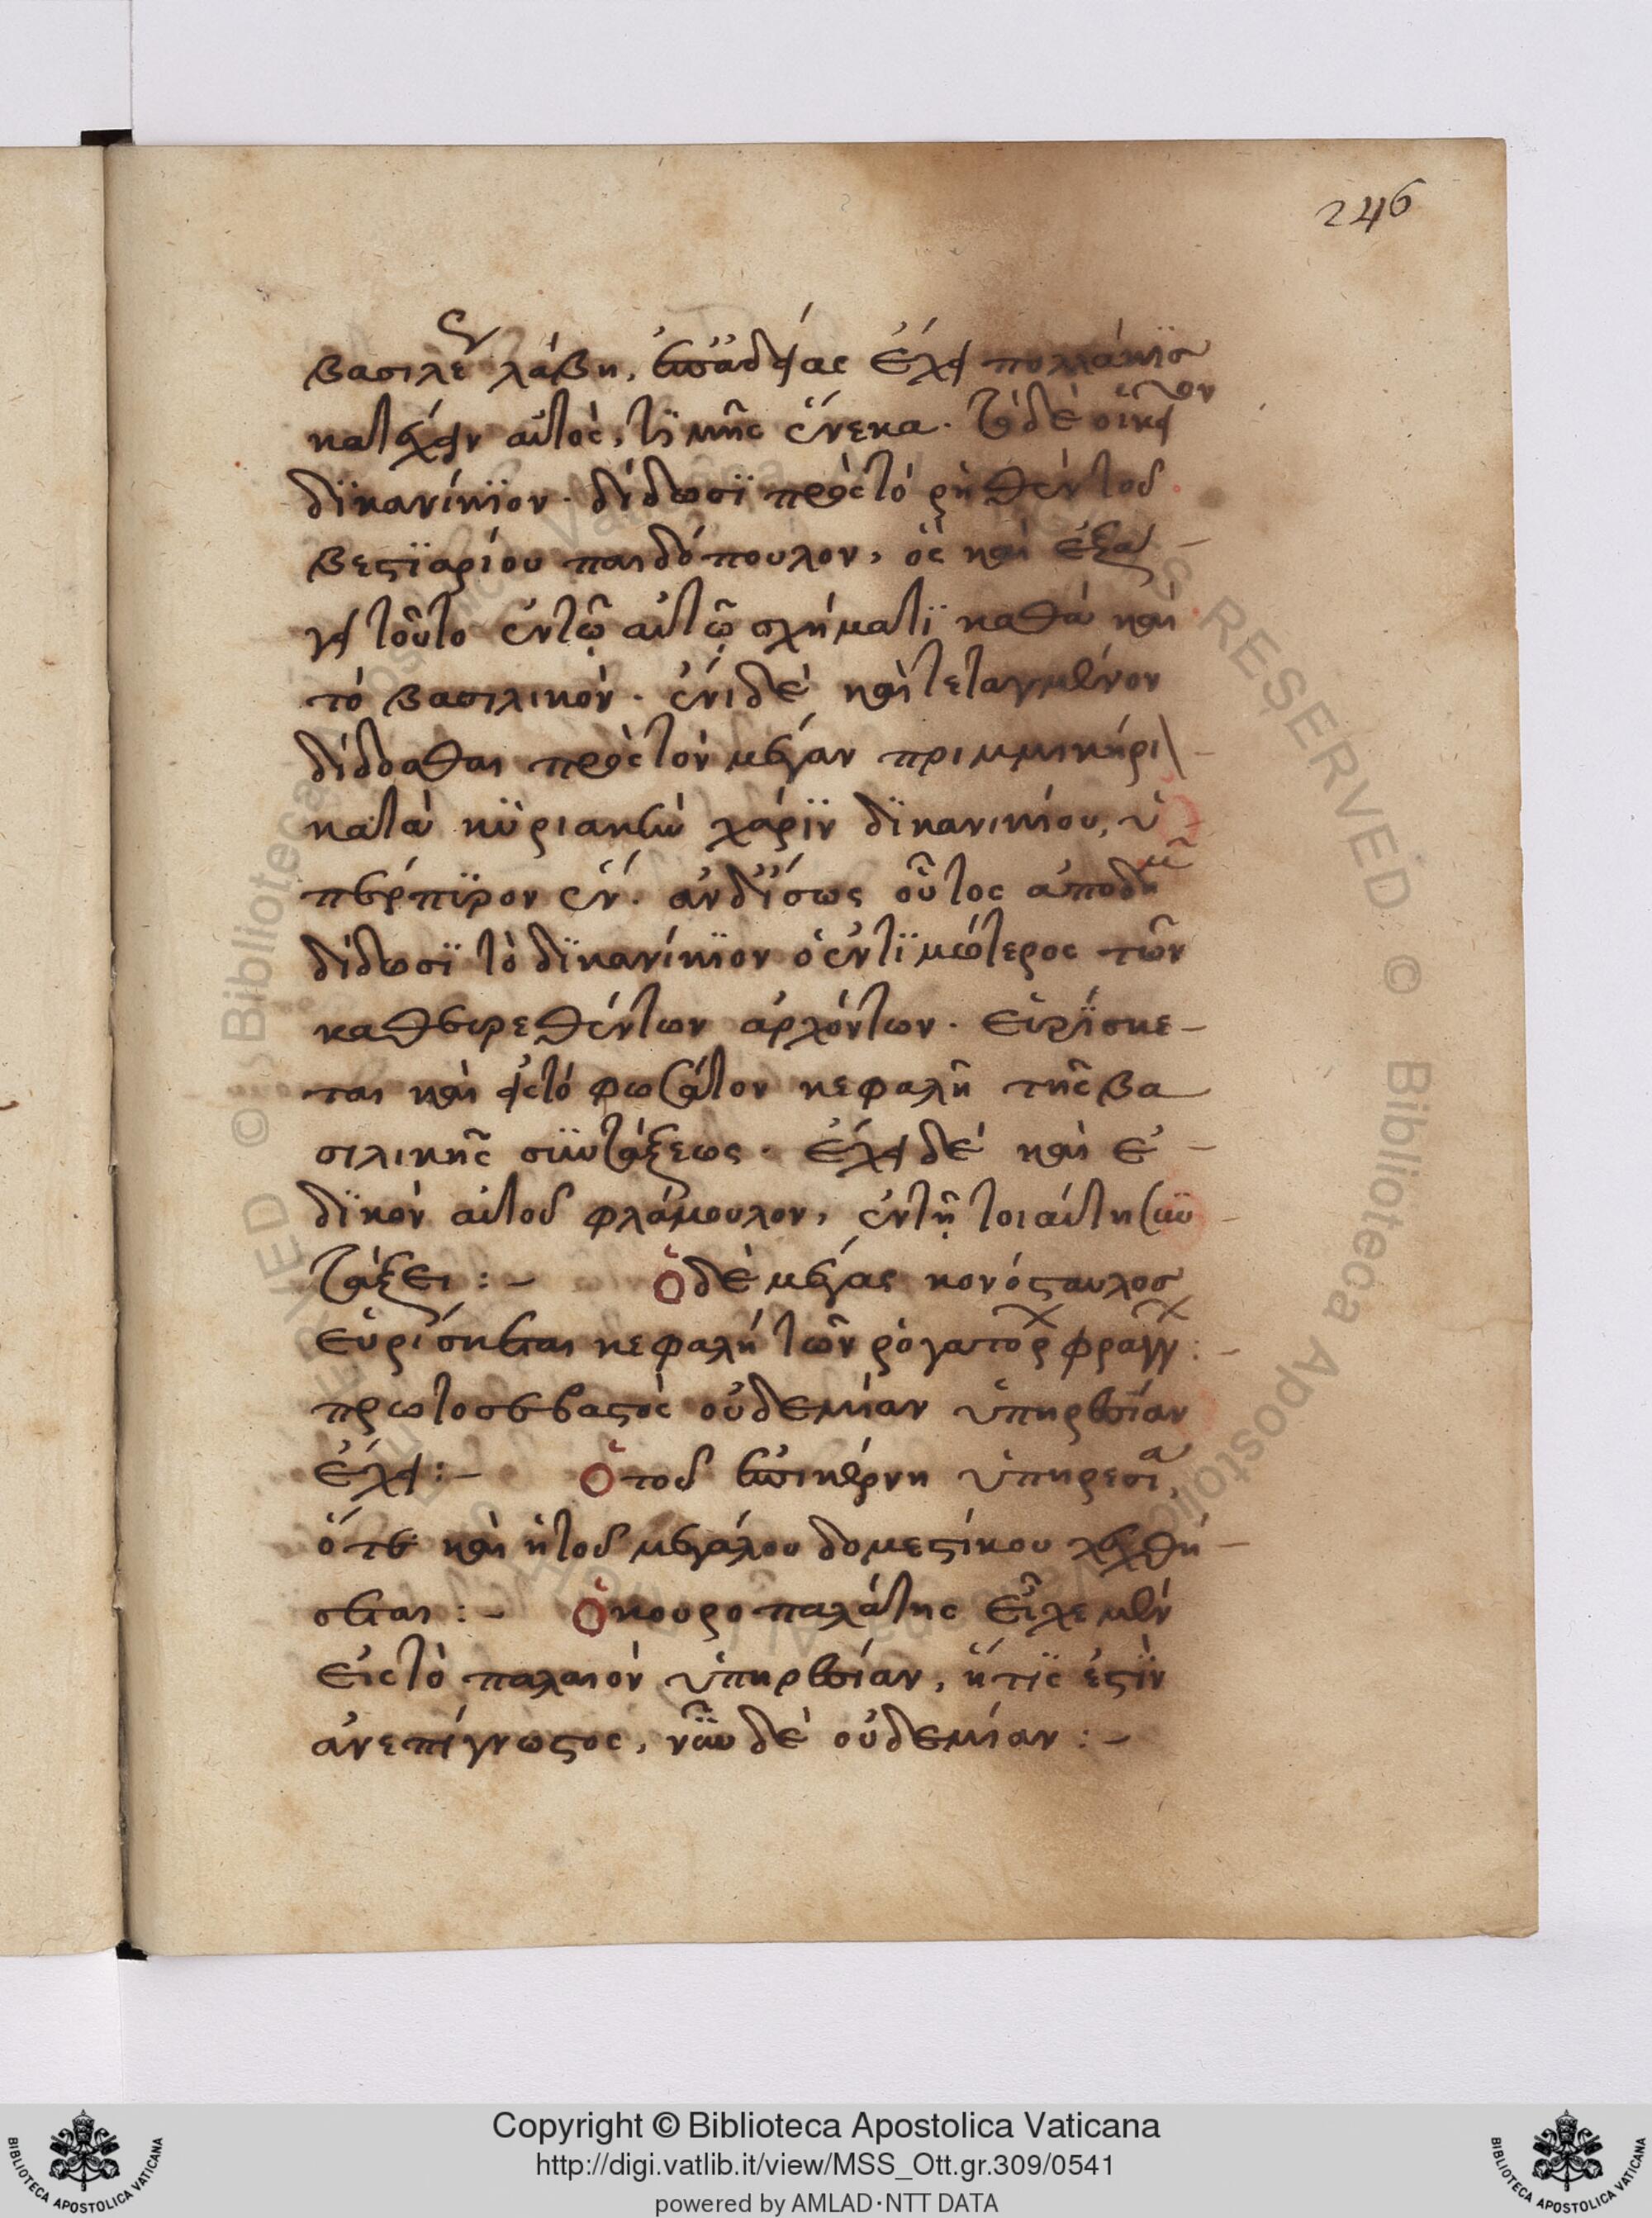 246
βασιλέως λάβη, ἐπ' ἀδείας ἔχει πολλάκις
κατέχειν αὐτὸς, τϊμῆς ἕνεκα. τὸ δὲ οἰκεῖον
δϊκανίκϊον. δίδωσϊ πρὸς τὸ ῥηθὲν τοῦ
βεστϊαρίου παιδόπουλον, ὃς καὶ ἐξά-
γει τοῦτο ἐν τῷ αὐτῷ σχήματϊ καθὰ καὶ
τὸ βασιλικὸν. ἔνι δὲ καὶ τεταγμένον
δίδοσθαι πρὸς τὸν μέγαν πριμμικήρι\-
κατὰ κϋριακὴν χάρϊν δϊκανικίου, ὑ-
πέρπϊρον ἕν. ἀνδἴσως οὗτος ἀποδημεῖ
δίδωσϊ τὸ δϊκανίκϊον ὁ ἐντϊμώτερος τῶν
καθευρεθέντων ἀρχόντων. εὑρΐσκε-
ται καὶ εἰς τὸ φωσάτον κεφαλὴ τῆς βα
σιλικῆς σϋντάξεως. ἔχει δὲ καὶ ἐ-
δϊκὸν αὐτοῦ φλάμουλον, ἐν τῇ τοιαύτη σϋν-
τάξει :- Ὁ δὲ μέγας κονόσταυλος
εὑρίσκεται κεφαλὴ τῶν ῥογατόρων φράγγων :-
πρωτοσέβαστος οὐδεμίαν ὑπηρεσίαν
ἔχει :- Ὁ τοῦ ἐπικέρνη ὑπηρεσία,
ὅτε καὶ ἡ τοῦ μεγάλου δομεστίκου λεχθή-
σεται :- Ὁ κουροπαλάτης εἶχε μὲν
εἰς τὸ παλαιὸν ὑπηρεσίαν, ἥτϊς ἐστϊν
ἀνεπίγνωστος, νῦν δὲ οὐδεμίαν :-
Copyright © Biblioteca Apostolica Vaticana
http://digi.vatlib.it/view/MSS_Ott.gr.309/0541
powered by AMLAD·NTT DATA
BIBLIOTECA APOSTOLICA VATICANA
BIBLIOTECA APOSTOLICA VATICANA